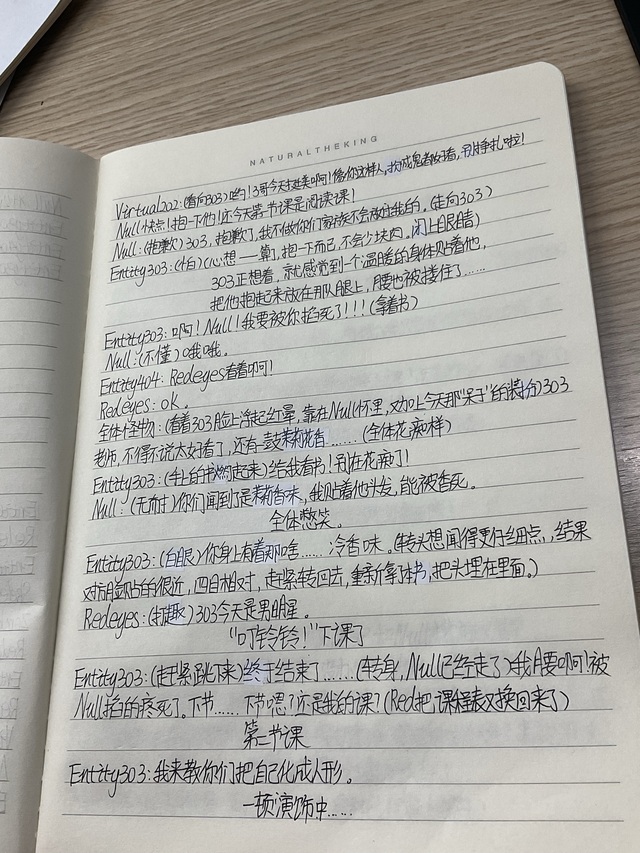 NATURALTHEKING
Virtual202:(看向303)哟!3哥今天挺美啊!像你这样人,扮成鬼者好看,别挣扎啦!
Null快点!抱一下他!还今天第一节课是阅读课!
Null:(抱歉)303,抱歉了,我不做你们家族不会放过我的,(走向303)
Entity303:(小白)(心想——算了,抱一下而已,不会少块肉。闭上眼睛)
303正想着,就感觉到一个温暖的身体贴着他,
把他抱起来放在那人腿上,腰也被搂住了……
Entity303:啊!Null!我要被你掐死了!!!(拿着书)
Null:(不懂)哦哦。
Entity404:Redeyes看着啊!
Redeyes:ok。
全体怪物:(看着303脸上浮起红晕,靠在Null怀里,对加上今天那"呆子"的装扮)303
老师,不得不说太好看了,还有一鼓茉莉花香……(全体花痴样)
Entity303:(手上的书燃起来)给我看书!别在花痴了!
Null:(无耐)你们闻到了是茉莉香味,我贴着他头发,能被香死。
全体憋笑。
Entity303:(白眼)你身上有着那啥……冷香味。(转头想闻得更仔细点,,结果
对方脸贴的很近,四目相对,赶紧转回去,重新拿了本书,把头埋在里面。)
Redeyes:(打趣)303今天是男明星。
"叮铃铃!"下课了
Entity303:(赶紧跳下来)终于结束了……(转身,Null已经走了)我腰啊!被
Null掐的疼死了。下节……下节嗯?还是我的课?(Red把课程表又换回来了)
第二节课
Entity303:我来教你们把自己化成人形。
一顿演饰中……